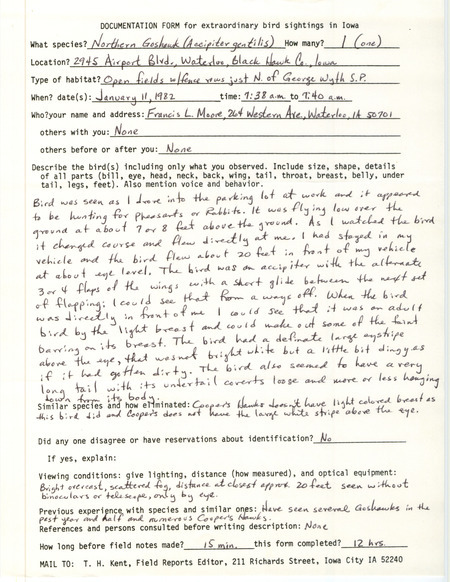 DOCUMENTATION FORM for extraordinary bird sightings in Iowa
What species? Northern Goshawk (Accipiter gentilis) How many? 1 (one)
Location? 2945 Airport Blvd., Waterloo, Black Hawk Co., Iowa
Type of habitat? Open fields w/fence rows just N. of George Wyth S.P.
When? date(s): January 11, 1982 time: 7:38 a.m to 7:40 a.m.
Who?your name and address: Francis L. Moore, 264 Western Ave., Waterloo, IA 50701
others with you: None
others before or after you: None
Describe the bird(s) including only what you observed. Include size, shape, details
of all parts (bill, eye, head, neck, back, wing, tail, throat, breast, belly, under
tail, legs, feet). Also mention voice and behavior.
Bird was seen as I drove into the parking lot at work and it appeared
to be hunting for Pheasants or Rabbits. It was flying low over the
ground at about 7 or 8 feet above the ground. As I watched the bird
it changed course and flew directly at me. I had stayed in my
vehicle and the bird flew about 20 feet in front of my vehicle
at about eye level. The bird was an accipiter with the alternate
3 or 4 flaps of the wings with a short glide between the next set
of flapping. I could see that from a ways off. When the bird
was directly in front of me I could see that it was an adult
bird by the light breast and could make out some of the faint
barring on its breast. The bird had a definate large eyestripe
above the eye, that was not bright white but a little bit dingy as
if it had gotten dirty. The bird also seemed to have a very
long tail with its undertail coverts loose and more or less hanging
down from its body.
Similar species and how eliminated: Cooper's Hawks doesn't have light colored breast as
this bird did and Cooper's does not have the large white stripe above the eye.
Did any one disagree or have reservations about identification? No
If yes, explain:
Viewing conditions: give lighting, distance (how measured), and optical equipment:
Bright overcast, scattered fog, distance at closest approx. 20 feet seen without
binoculars or telescope, only by eye.
Previous experience with species and similar ones: Have seen several Goshawks in the
past year and half and numerous Cooper's Hawks.
References and persons consulted before writing description: None
How long before field notes made? 15 min. this form completed? 12 hrs.
MAIL TO: T. H. Kent, Field Reports Editor, 211 Richards Street, Iowa City IA 52240